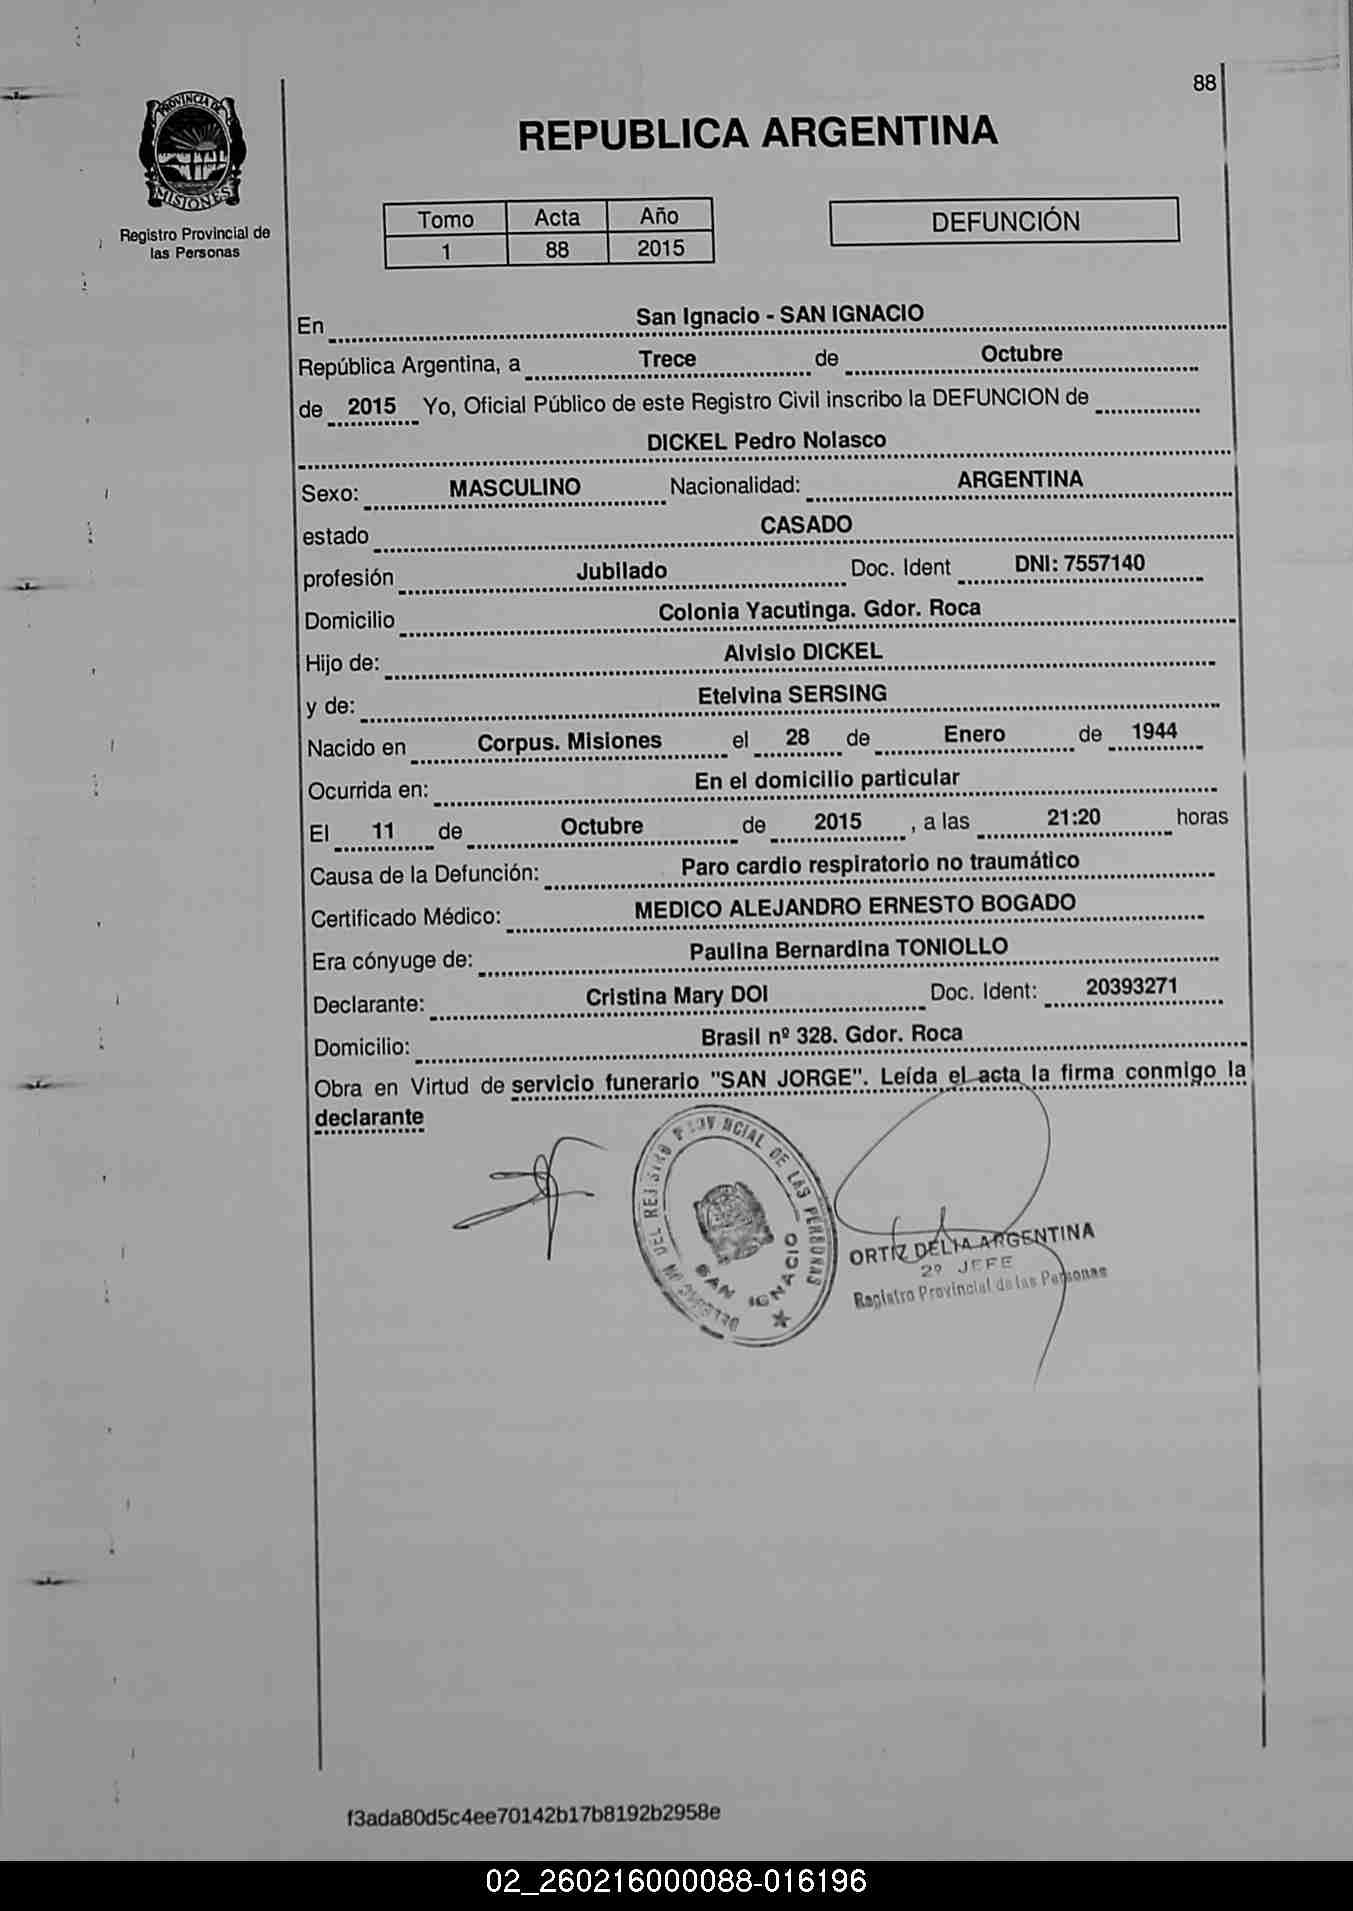 88
PROVINCIA DE
MISIONES
Registro Provincial de
las Personas
REPUBLICA ARGENTINA
Tomo Acta Año
1 88 2015
DEFUNCIÓN
En San Ignacio - SAN IGNACIO
República Argentina, a Trece de Octubre
de 2015 Yo, Oficial Público de este Registro Civil inscribo la DEFUNCION de
DICKEL Pedro Nolasco
Sexo: MASCULINO Nacionalidad: ARGENTINA
estado CASADO
profesión Jubilado Doc. Ident DNI: 7557140
Domicilio Colonia Yacutinga. Gdor. Roca
Hijo de: Alvisio DICKEL
y de: Etelvina SERSING
Nacido en Corpus. Misiones el 28 de Enero de 1944
Ocurrida en: En el domicilio particular
El 11 de Octubre de 2015 , a las 21:20 horas
Causa de la Defunción: Paro cardio respiratorio no traumático
Certificado Médico: MEDICO ALEJANDRO ERNESTO BOGADO
Era cónyuge de: Paulina Bernardina TONIOLLO
Declarante: Cristina Mary DOI Doc. Ident: 20393271
Domicilio: Brasil nº 328. Gdor. Roca
Obra en Virtud de servicio funerario "SAN JORGE". Leída el acta la firma conmigo la
declarante
DEL REGISTRO PROVINCIAL DE LAS PERSONAS
SAN IGNACIO
ORTIZ DELIA ARGENTINA
2º JEFE
Registro Provincial de las Personas
f3ada80d5c4ee70142b17b8192b2958e
02_260216000088-016196